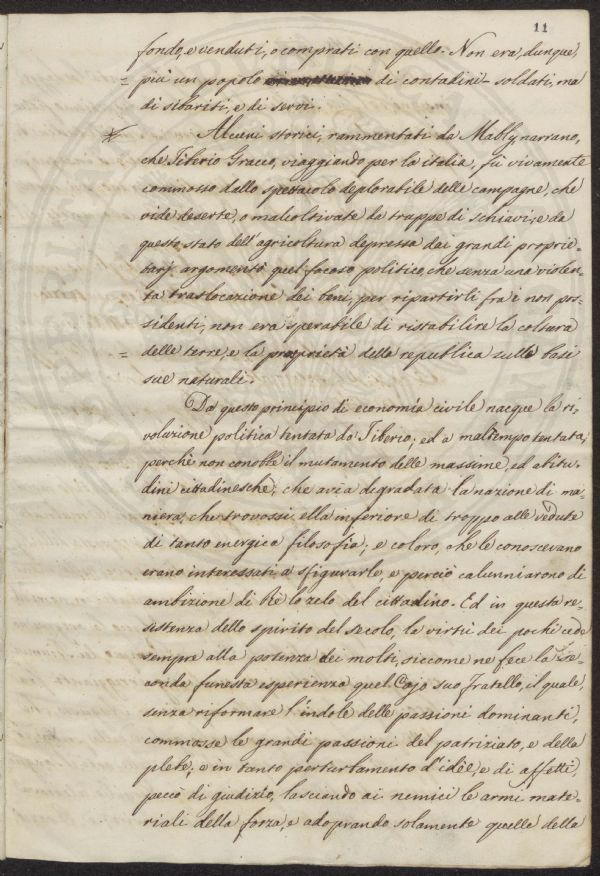 11
fondo, e venduti, o comprati con quello. Non era, dunque,
= più un popolo di contadini-soldati, ma
di sibariti, e di servi.
* Alcuni storici, rammentati da Mably narrano,
che Tiberio Gracco, viaggiando per la italia, fù vivamente
commosso dallo spettacolo deplorabile delle campagne, che
vide deserte, o malcoltivate da truppe di schiavi, e da
questo stato dell'agricoltura depressa dai grandi proprie-
tarj argomentò quel focoso politico, che senza una violen-
ta traslocazione dei beni, per ripartirli fra i non pos-
sidenti, non era sperabile di ristabilire la coltura
= delle terre, e la proprietà della republica sulle basi
sue naturali.
Da questo principio di economia civile nacque la ri-
voluzione politica tentata da Tiberio; ed a maltempo tentata,
perchè non conobbe il mutamento delle massime, ed abitu-
dini cittadinesche, che avea degradata la nazione di ma-
niera, che trovossi ella inferiore di troppo alle vedute
di tanto energica filosofia, e coloro, che le conoscevano
erano interessati a sfigurarle, e perciò calunniarono di
ambizione di Rè lo zelo del cittadino. Ed in questa re-
sistenza dello spirito del secolo, la virtù dei pochi cede
sempre alla potenza dei molti, siccome ne fece la se-
conda funesta esperienza quel Cajo suo fratello, il quale,
senza riformare l'indole delle passioni dominanti,
commosse le grandi passioni del patriziato, e della
plebe; e in tanto perturbamento d'idèe, e di affetti,
peccò di giudizio, lasciando ai nemici le armi mate-
riali della forza, e adoprando solamente quelle della